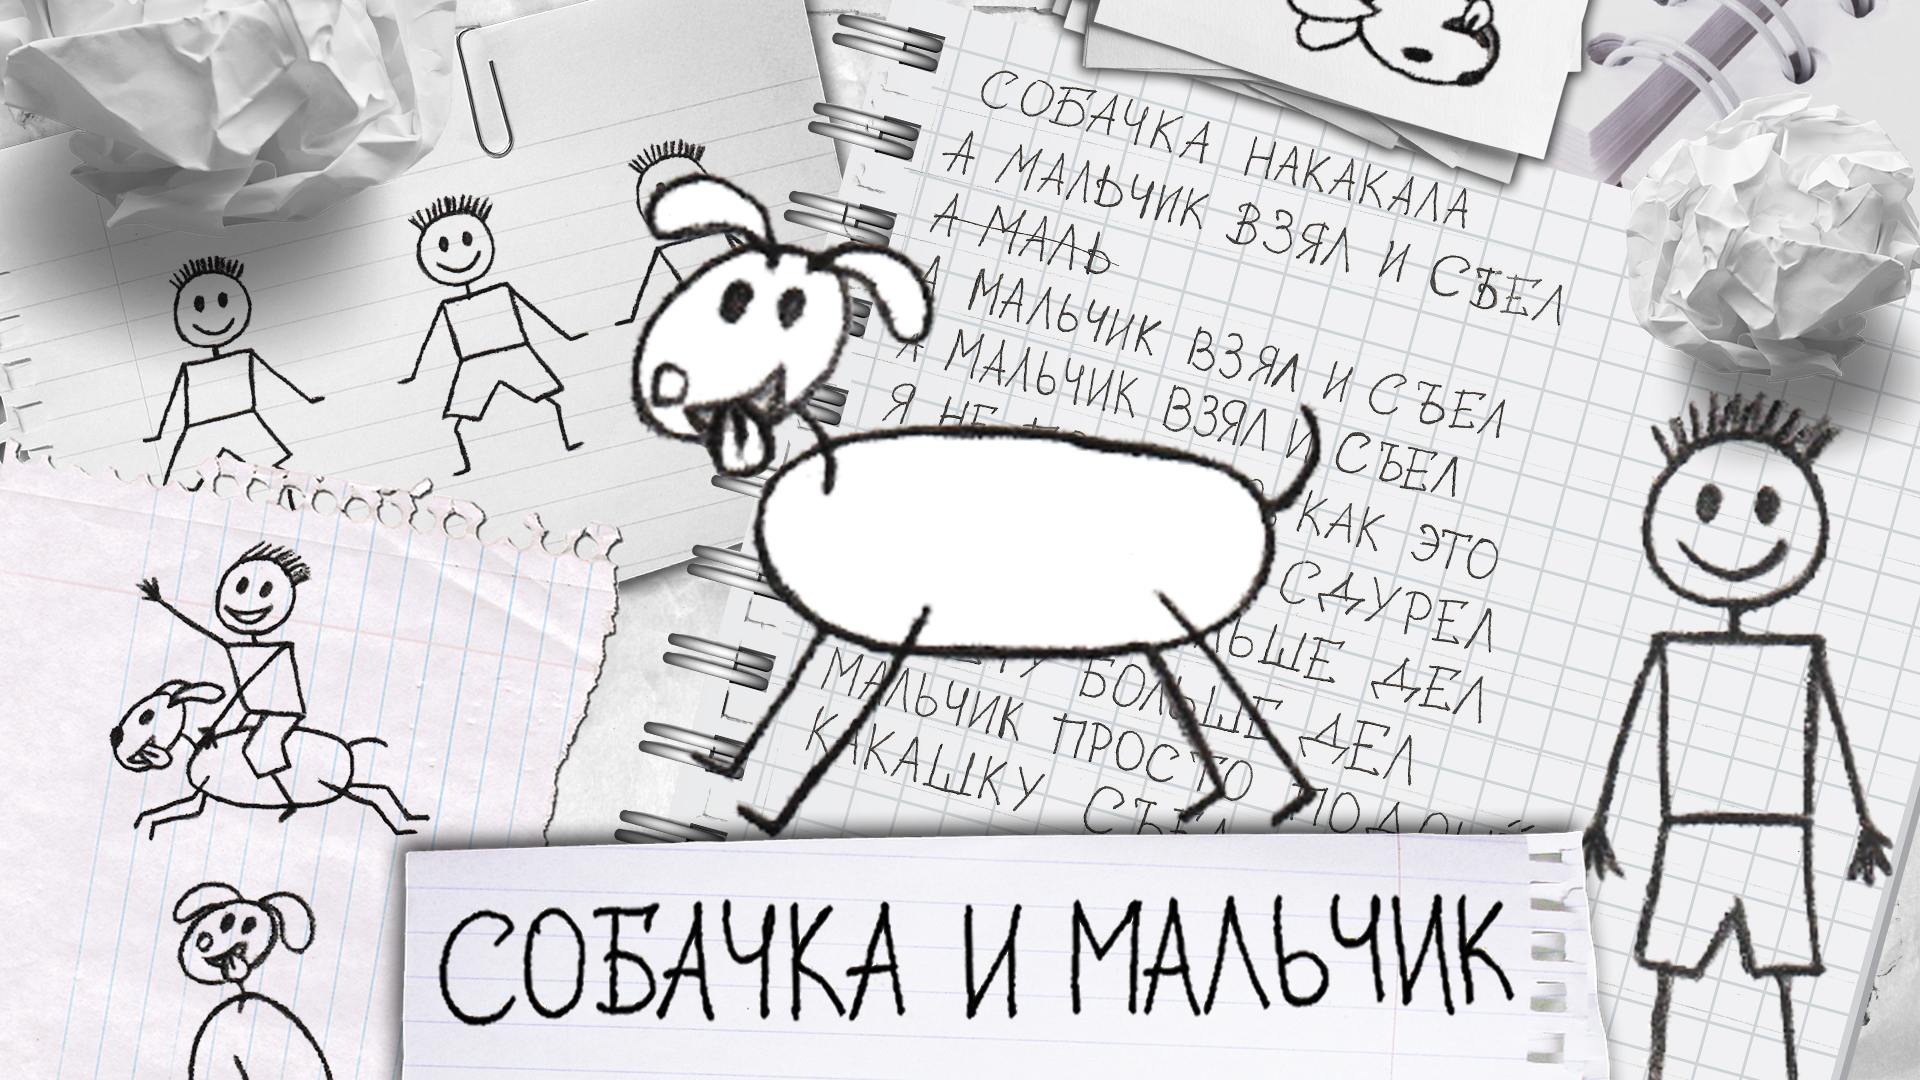 СОБАЧКА НАКАКАЛА
А МАЛЬЧИК ВЗЯЛ И СЪЕЛ
А МАЛЬ
А МАЛЬЧИК ВЗЯЛ И СЪЕЛ
А МАЛЬЧИК ВЗЯЛ И СЪЕЛ
Я НЕ КАК ЭТО
СДУРЕЛ
ДЕЛ
БОЛЬШЕ ДЕЛ
МАЛЬЧИК ПРОСТО
КАКАШКУ СЪЕЛ
СОБАЧКА И МАЛЬЧИК